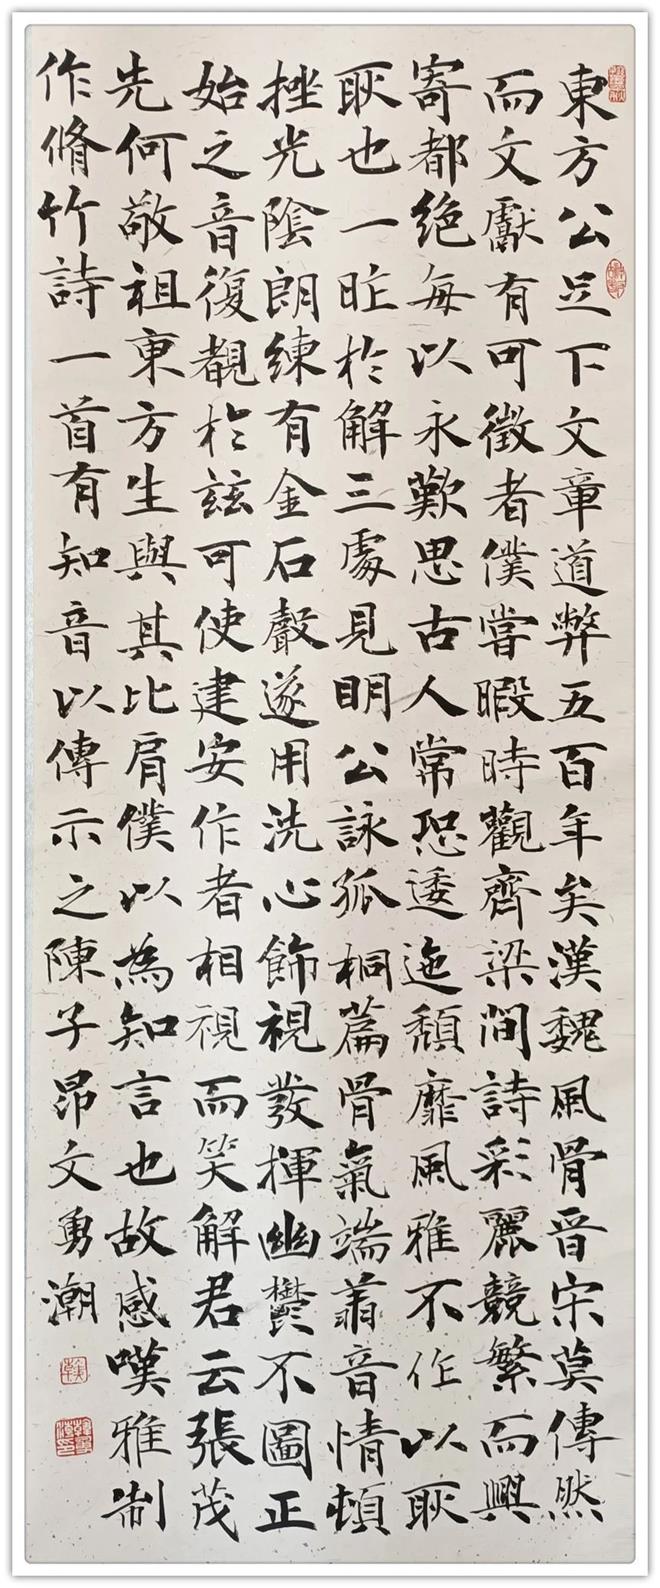 東方公足下文章道弊五百年矣漢魏風骨晉宋莫傳然
而文獻有可徵者僕嘗暇時觀齊梁間詩彩麗競繁而興
寄都絕每以永歎思古人常恐逶迤頹靡風雅不作以耿
耿也一昨於解三處見明公詠孤桐篇骨氣端翔音情頓
挫光陰朗練有金石聲遂用洗心飾視發揮幽鬱不圖正
始之音復覩於茲可使建安作者相視而笑解君云張茂
先何敬祖東方生與其比肩僕以為知言也故感嘆雅制
作脩竹詩一首有知音以傳示之陳子昂文勇潮